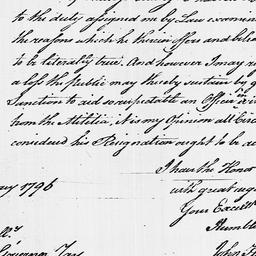 to the duty assigned me by Law examinin
the reasons which he therein offers and belie
to be literally true. And however I may re
a loss the public may thereby sustain by g
Sanction to aid so respectable an Officer in
from the Militia, it is my Opinion all Circ
considered his Resignation ought to be ac
I have the Honor
with great
ary 1796
Your Excell
Humble
Governor
John